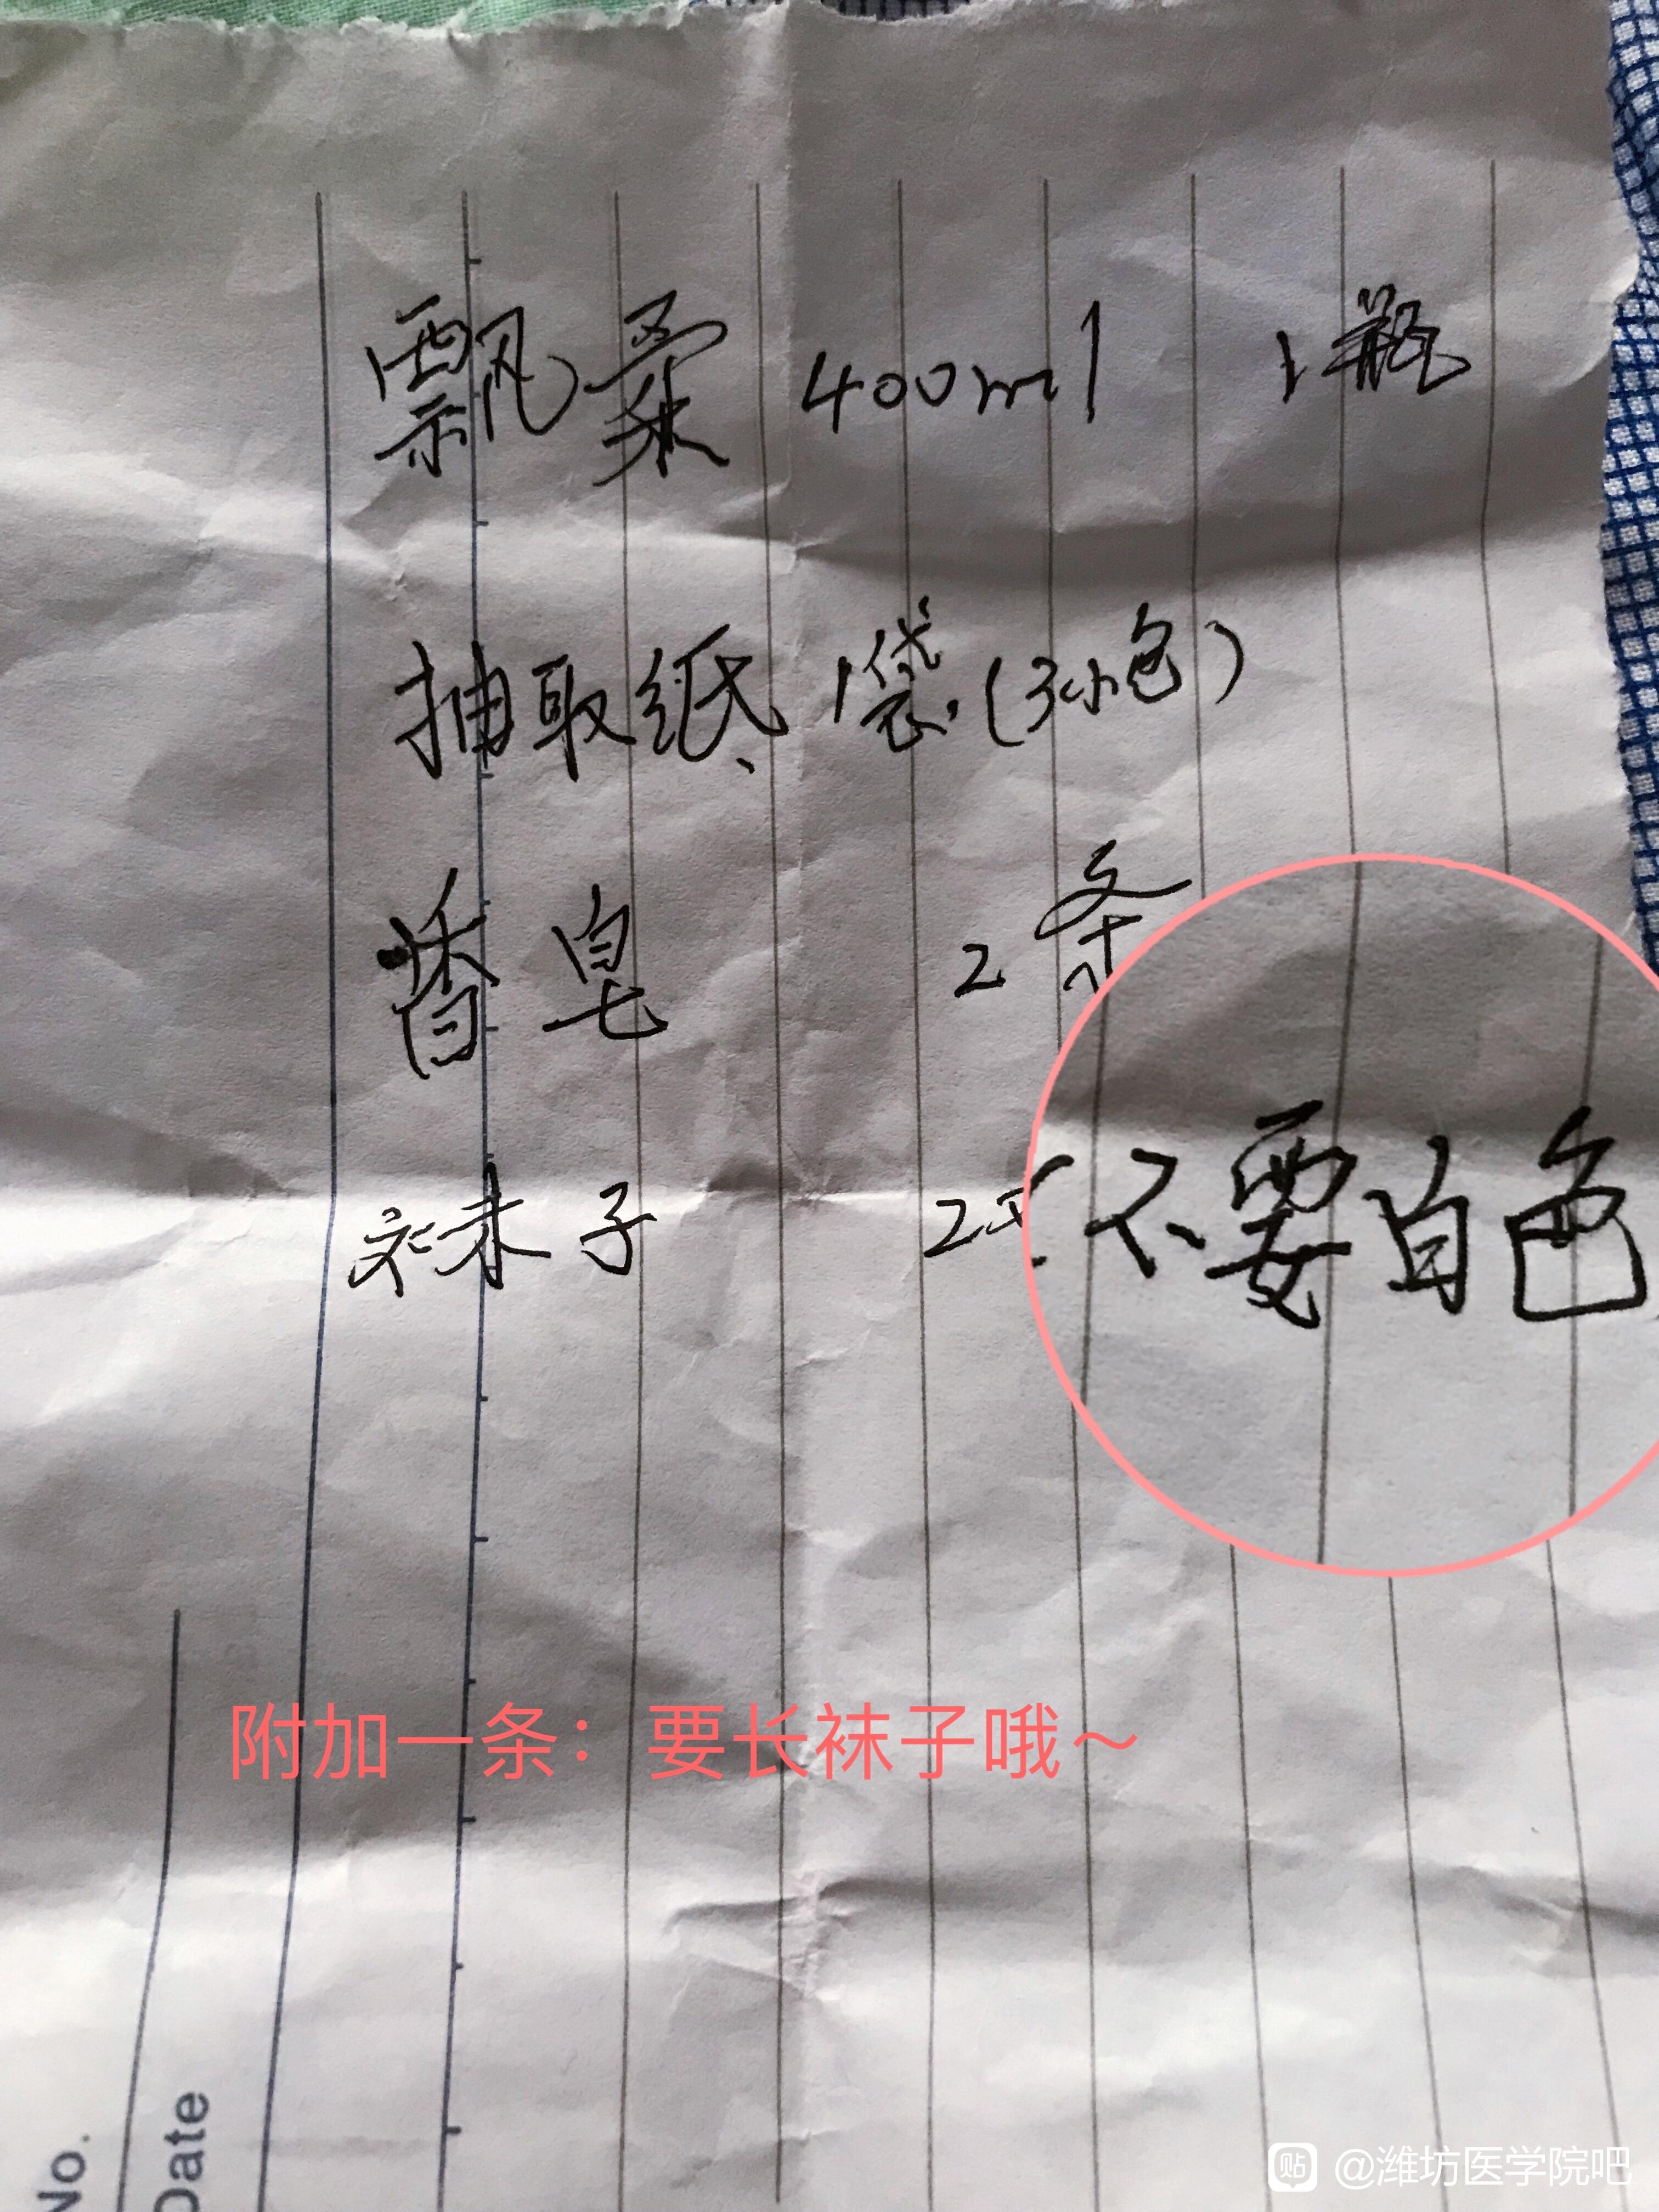 飘柔 400ml 1瓶
抽取纸 1袋(3小包)
香皂 2条
袜子 2
不要白色
附加一条：要长袜子哦～
No.
Date
贴 @潍坊医学院吧